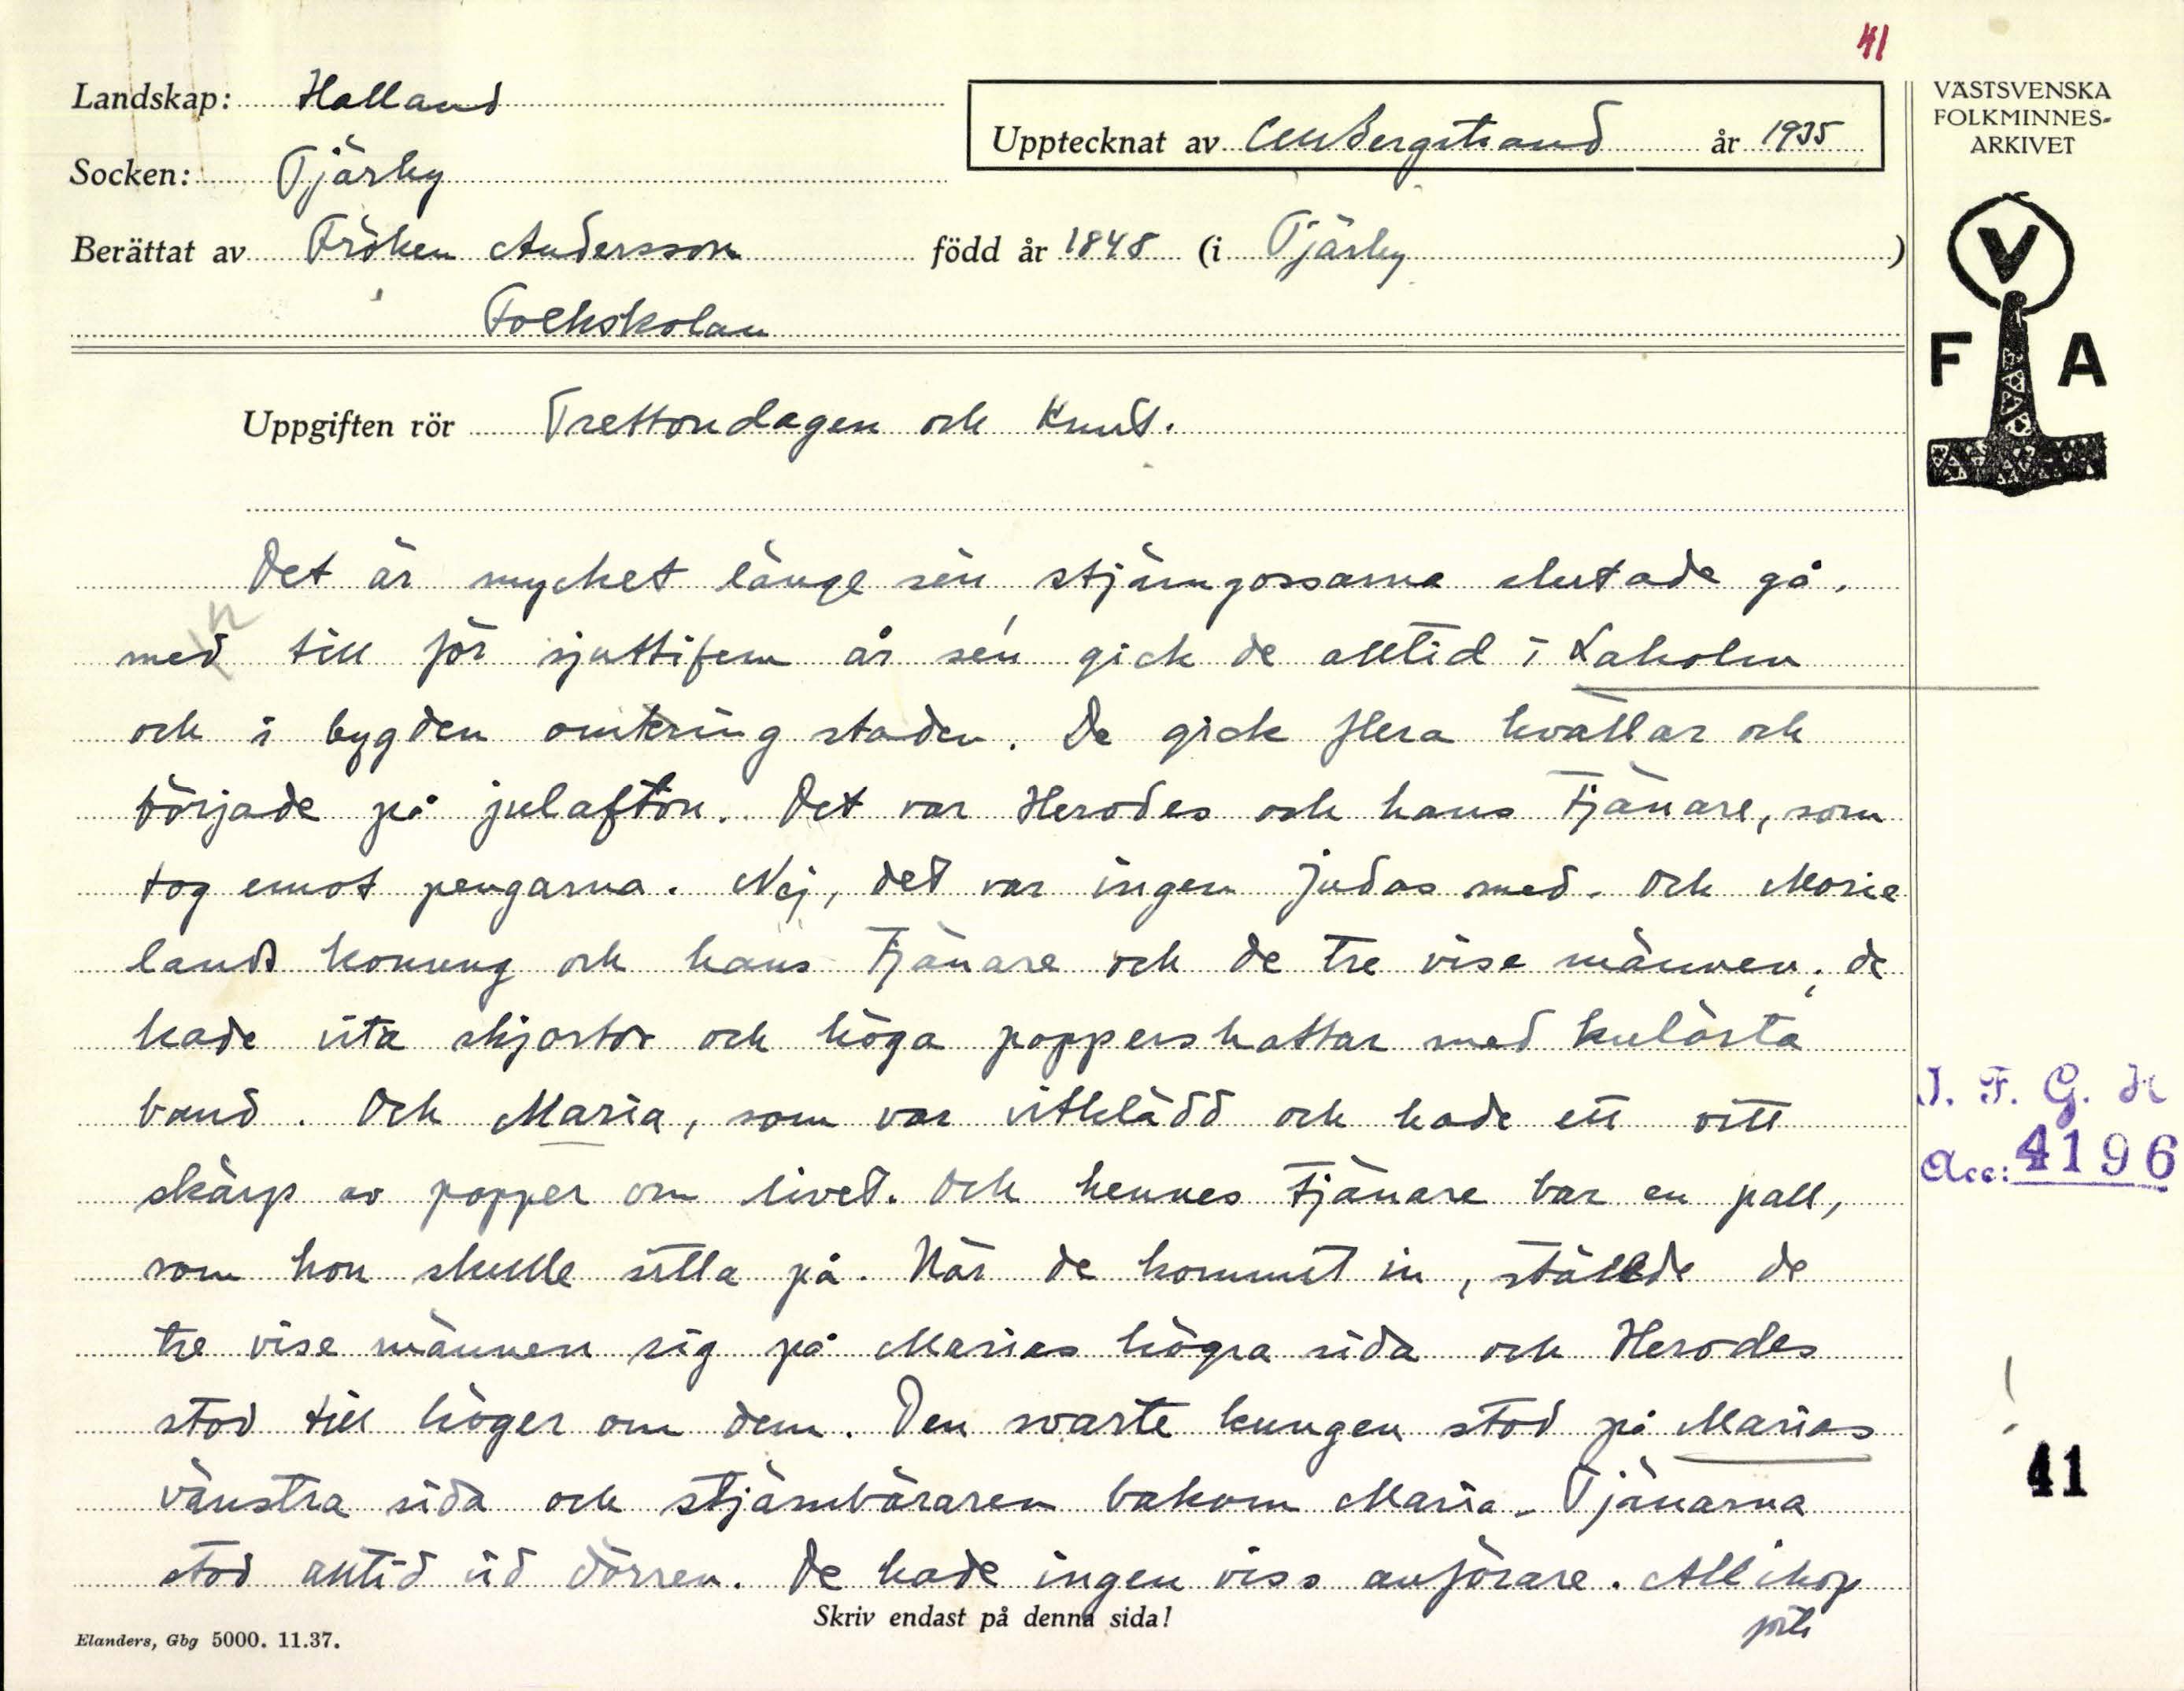 41
Landskap: Halland
Upptecknat av CMBergstrand år 1935
Socken: Tjärby
Berättat av Fröken Andersson född år 1848 (i Tjärby)
Folkskolan
Uppgiften rör Trettondagen och Knut.
Det är mycket länge sén stjärngossarna slutade gå,
men till för sjuttifem år sén gick de alltid i Laholm
och i bygden omkring staden. De gick flera kvällar och
började på julafton. Det var Herodes och hans tjänare, som
tog emot pengarna. Nej, det var ingen Judas med. Och Morie
lands konung och hans tjänare och de tre vise männen, de
hade vita skjortor och höga pappershattar med kulörta
band. Och Maria, som var vitklädd och hade ett vitt
skärp av papper om livet. Och hennes tjänare bar en pall,
som hon skulle sitta på. När de kommit in, ställde de
tre vise männen sig på Marias högra sida och Herodes
stod till höger om dem. Den svarte kungen stod på Marias
vänstra sida och stjärnbäraren bakom Maria. Tjänarna
stod alltid vid dörren. De hade ingen viss anförare. Allihop
Skriv endast på denna sida!
Elanders, Gbg 5000. 11.37.
VÄSTSVENSKA
FOLKMINNES-
ARKIVET
V
F A
I. F. G. H
Acc: 4196
!
41